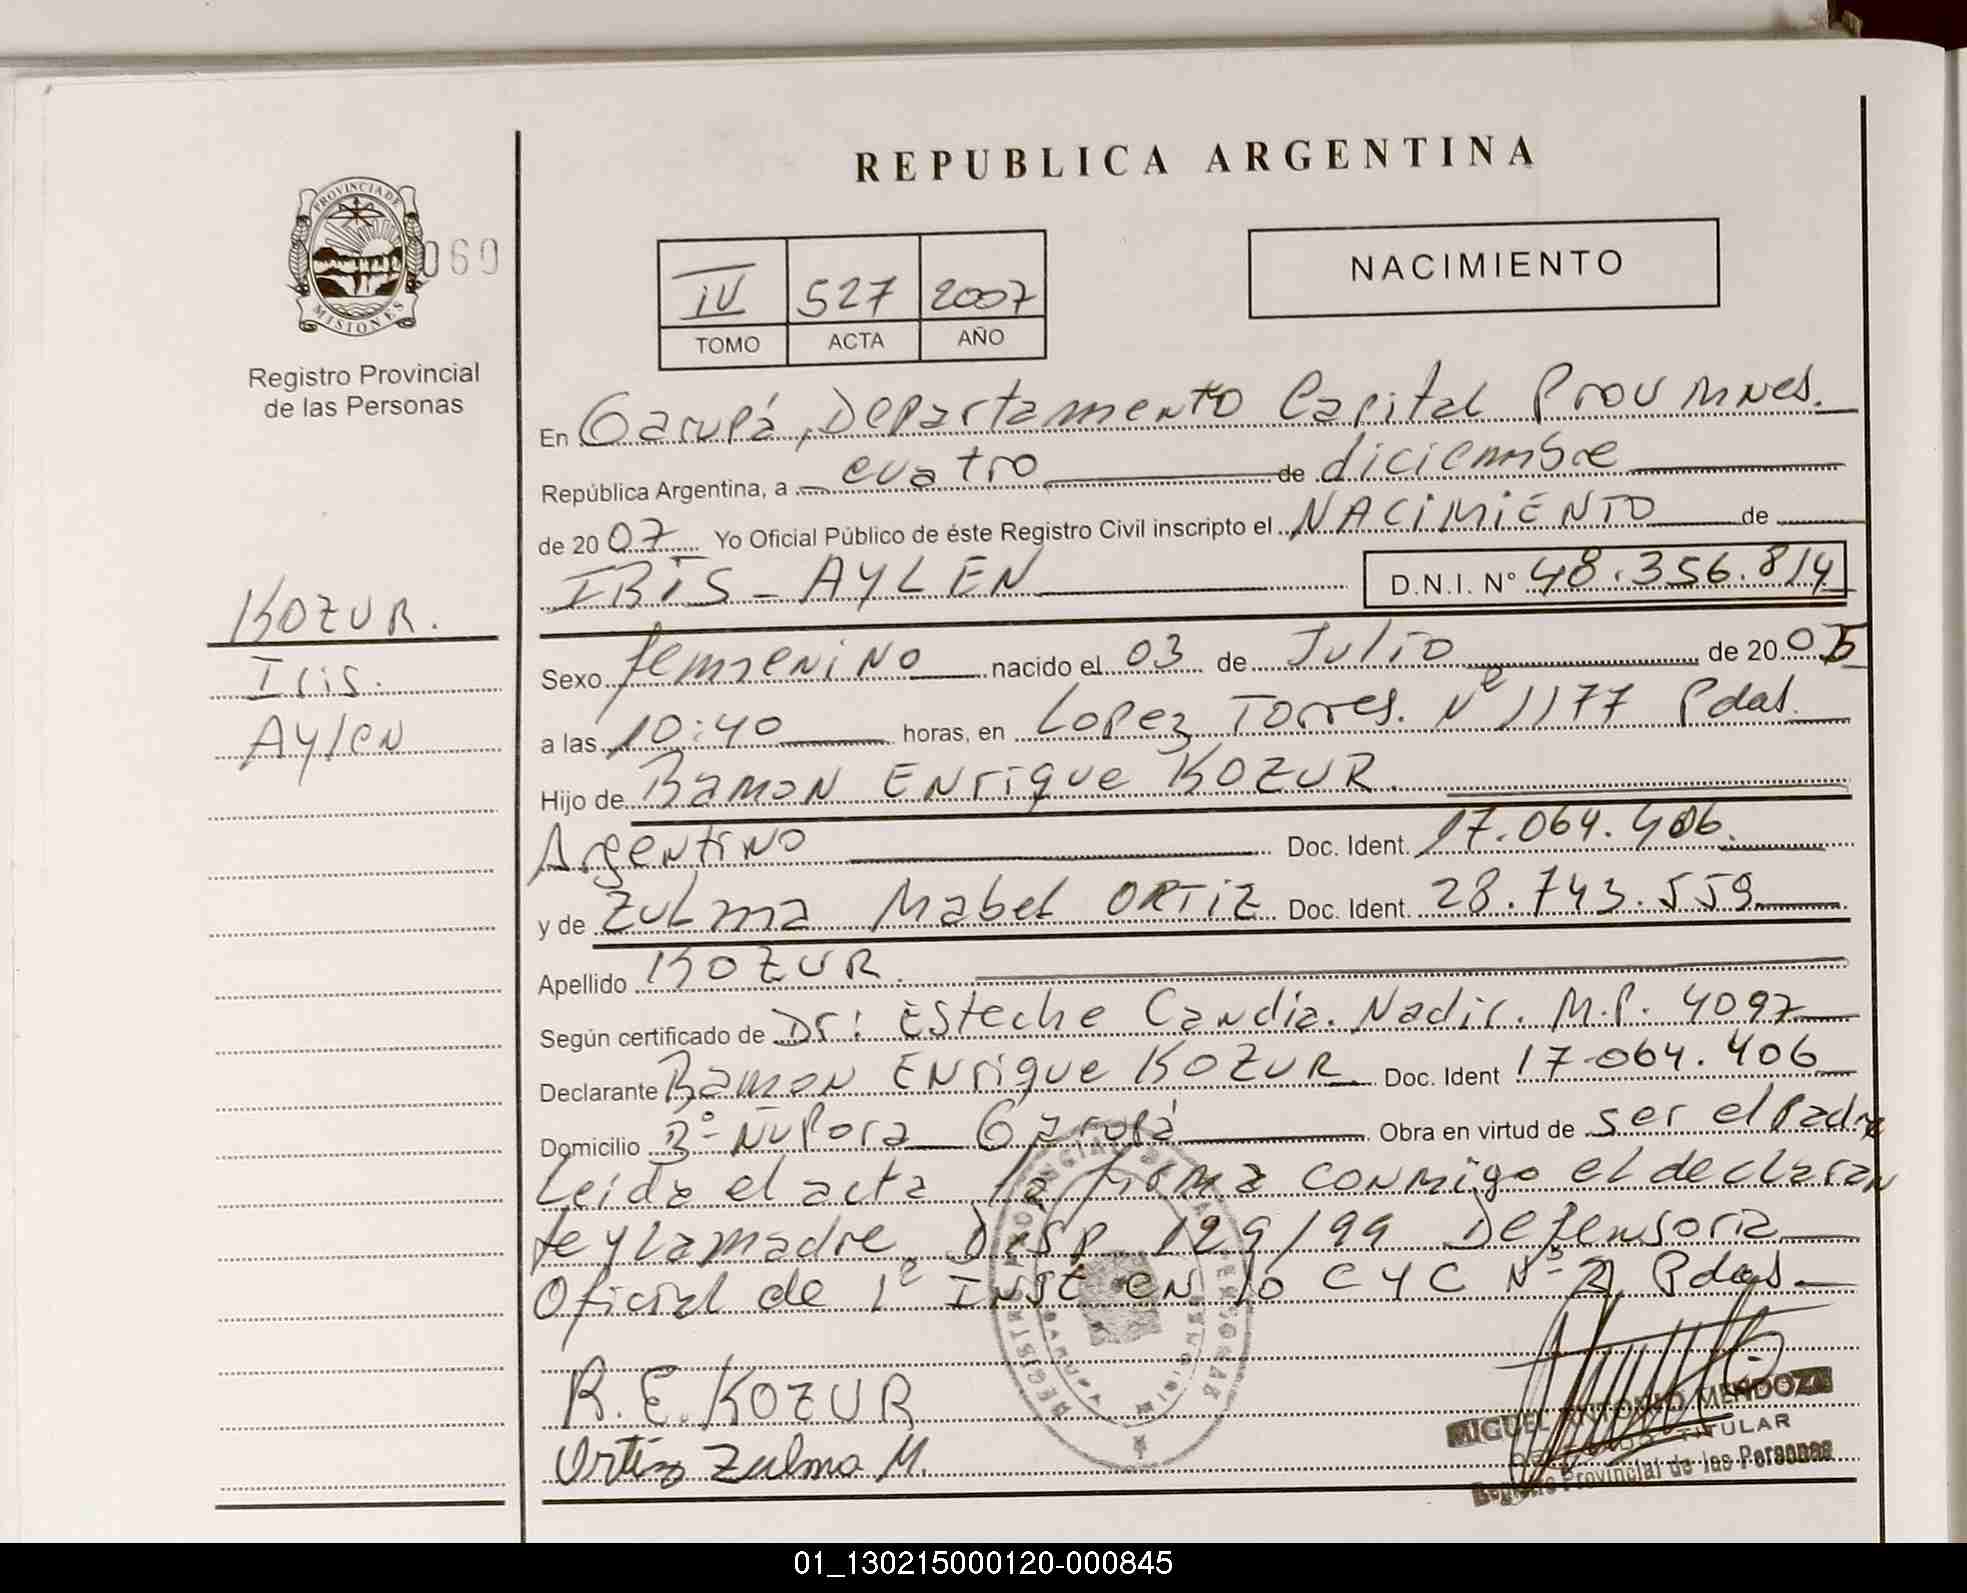 REPUBLICA ARGENTINA
PROVINCIA DE
MISIONES
060
Registro Provincial
de las Personas
IV 527 2007
TOMO ACTA AÑO
NACIMIENTO
En Garupá, Departamento Capital Prov Mnes.
República Argentina, a cuatro de diciembre
de 2007 Yo Oficial Público de éste Registro Civil inscripto el NACIMIENTO de
IRIS - AYLEN D.N.I. N° 48.356.814
KOZUR.
Iris.
Aylen
Sexo femenino nacido el 03 de Julio de 2005
a las 10:40 horas, en Lopez Torres. Nº 1177 Pdas.
Hijo de Ramon Enrique KOZUR.
Argentino Doc. Ident. 17.064.406.
y de Zulma Mabel ORTIZ Doc. Ident. 28.743.559
Apellido KOZUR.
Según certificado de Dr: Esteche Candia. Nadir. M.P. 4097
Declarante Ramon Enrique KOZUR Doc. Ident 17.064.406
Domicilio Bº Ñu Pora Garupá Obra en virtud de ser el Padre
Leida el acta la firma conmigo el declaran
te y la madre. Disp 129/99 Defensoria
Oficial de 1º Inst en lo C y C Nº 2 Pdas.
R. E. KOZUR
Ortiz Zulma M.
MIGUEL ANTONIO MENDOZA
TITULAR
Registro Provincial de las Personas
01_130215000120-000845